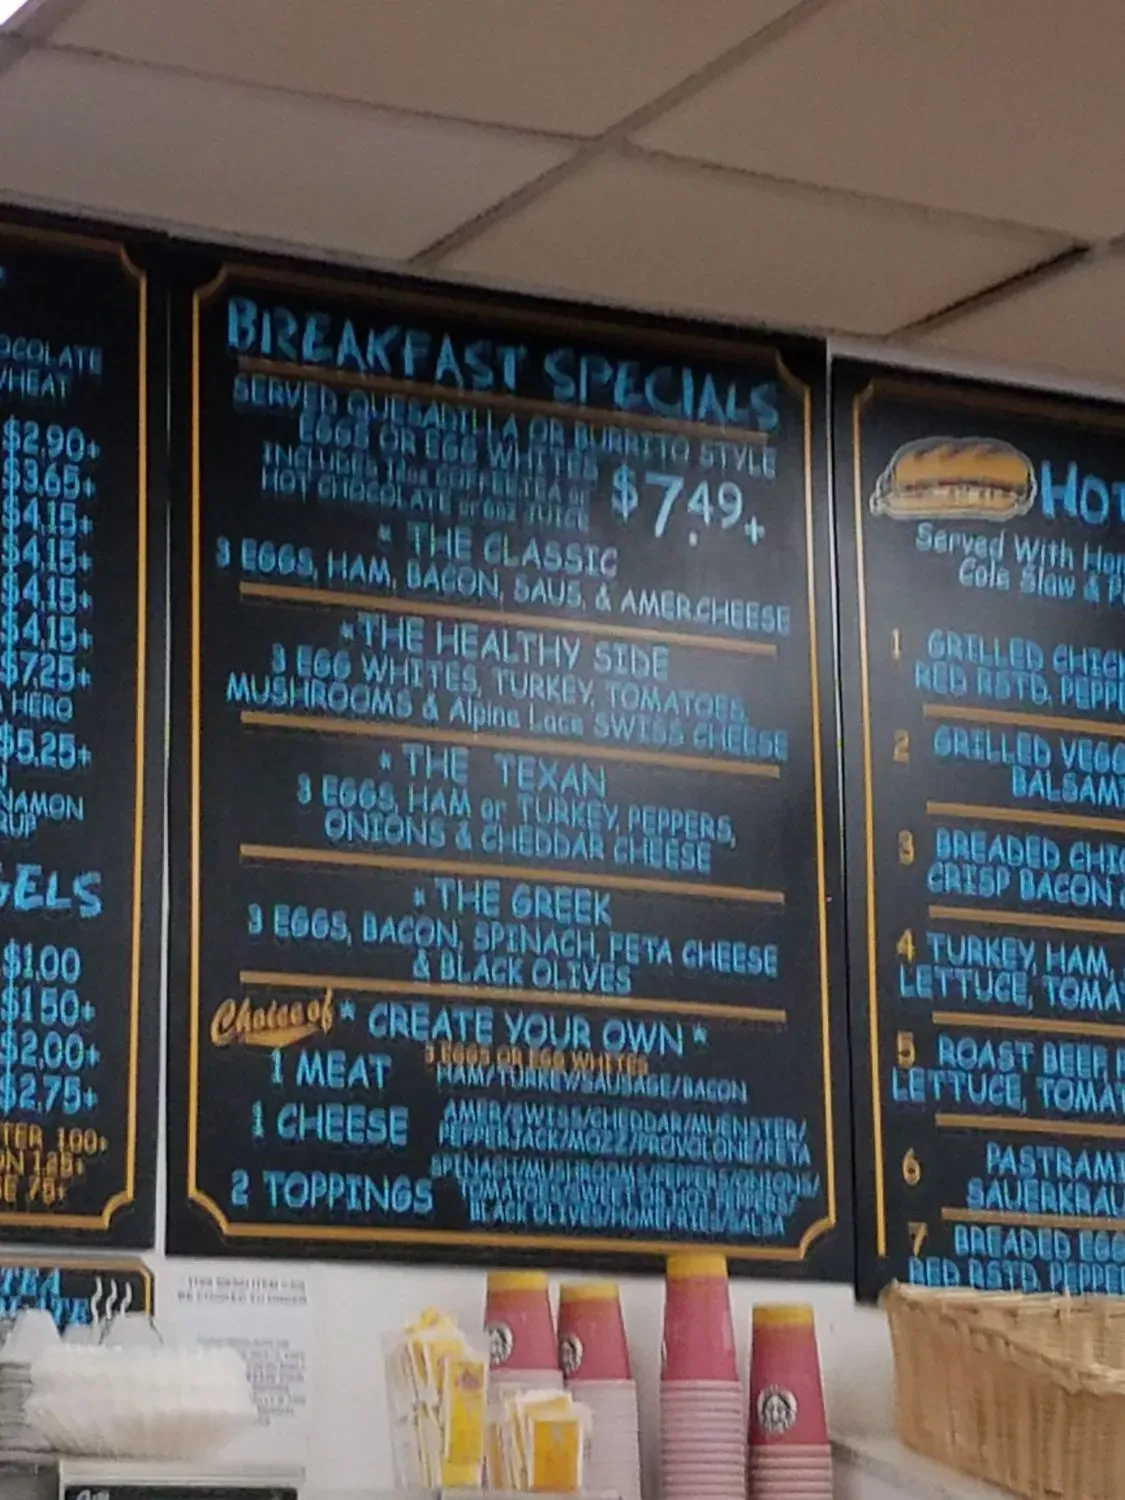 OCOLATE
WHEAT
$2.90+
$3.65+
$4.15+
$4.15+
$4.15+
$4.15+
$7.25+
HERO
$5.25+
NAMON
RUP
GELS
$1.00
$1.50+
$2.00+
$2.75+
TER 1.00+
BREAKFAST SPECIALS
SERVED QUESADILLA OR BURRITO STYLE
EGGS OR EGG WHITES
INCLUDES 16oz COFFEE/TEA or
HOT CHOCOLATE or 8oz JUICE
$7.49+
* THE CLASSIC
3 EGGS, HAM, BACON, SAUS, & AMER.CHEESE
*THE HEALTHY SIDE
3 EGG WHITES, TURKEY, TOMATOES,
MUSHROOMS & Alpine Lace SWISS CHEESE
* THE TEXAN
3 EGGS, HAM or TURKEY, PEPPERS,
ONIONS & CHEDDAR CHEESE
* THE GREEK
3 EGGS, BACON, SPINACH, FETA CHEESE
& BLACK OLIVES
Choice of * CREATE YOUR OWN *
3 EGGS OR EGG WHITES
1 MEAT HAM/TURKEY/SAUSAGE/BACON
1 CHEESE AMER/SWISS/CHEDDAR/MUENSTER/
PEPPERJACK/MOZZ/PROVOLONE/FETA
2 TOPPINGS SPINACH/MUSHROOM/PEPPERS/ONIONS/
TOMATOES/SWEET OR HOT PEPPERS/
BLACK OLIVES/HOMEFRIES/SALSA
HOT
Served With Hom
Cole Slaw & P
1 GRILLED CHICK
RED RSTD. PEPPE
2 GRILLED VEGG
BALSAMI
3 BREADED CHIC
CRISP BACON
4 TURKEY, HAM,
LETTUCE, TOMA
5 ROAST BEEF,
LETTUCE, TOMAT
6 PASTRAMI
SAUERKRAU
7 BREADED EGG
RED RSTD. PEPPE